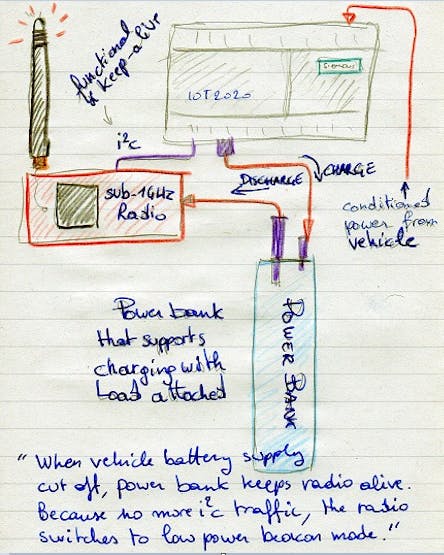 functional
& keep-alive
SIEMENS
IOT2020
i²c
CHARGE
DISCHARGE
sub-1GHz
Radio
conditioned
power from
vehicle
Power bank
that supports
charging with
load attached
POWER BANK
" When vehicle battery supply
cut off, power bank keeps radio alive.
Because no more i²c traffic, the radio
switches to low power beacon mode. "